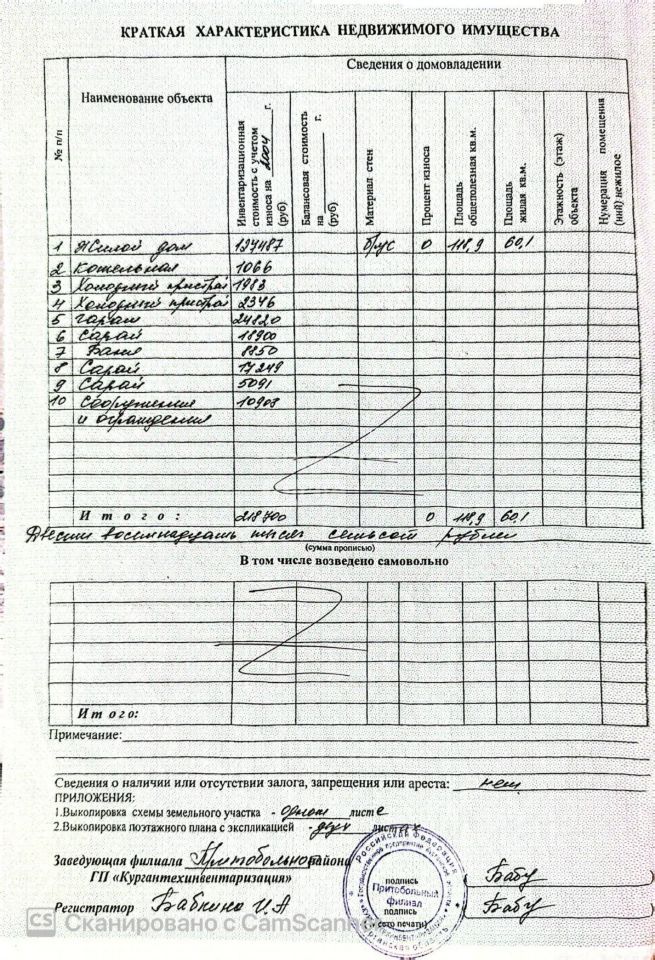 КРАТКАЯ ХАРАКТЕРИСТИКА НЕДВИЖИМОГО ИМУЩЕСТВА
№ п/п
Наименование объекта
Сведения о домовладении
Инвентаризационная стоимость с учетом износа на 2004 г. (руб)
Балансовая стоимость на г. (руб)
Материал стен
Процент износа
Площадь общеполезная кв.м.
Площадь жилая кв.м.
Этажность (этаж) объекта
Нумерация помещения (ний) нежилое
1 Жилой дом 127487 брус 0 118,9 60,1
2 Котельная 1066
3 Холодный пристрой 1983
4 Холодный пристрой 2346
5 Гараж 24820
6 Сарай 18900
7 Баня 8850
8 Сарай 17249
9 Сарай 5091
10 Сооружения 10908
и ограждения
Итого: 218700 0 118,9 60,1
Двести восемнадцать тысяч семьсот рублей
(сумма прописью)
В том числе возведено самовольно
Итого:
Примечание:
Сведения о наличии или отсутствии залога, запрещения или ареста: нет
ПРИЛОЖЕНИЯ:
1.Выкопировка схемы земельного участка - одном листе
2.Выкопировка поэтажного плана с экспликацией - двух листах
Заведующая филиала Притобольного района
ГП «Кургантехинвентаризация»
Регистратор Бабкина И.А
Российская Федерация
Притобольный
филиал
Курганская область
подпись
подпись
(место печати)
Бабу
Бабу
CS Сканировано с CamScanner